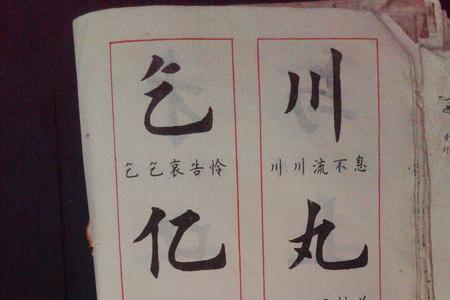 川
川川流不息
丸
乞
乞乞哀告怜
亿